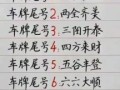 车牌尾号2、两全齐美
车牌尾号3、三阳开泰
车牌尾号4、四方来财
车牌尾号5、五谷丰登
车牌尾号6、六六大顺